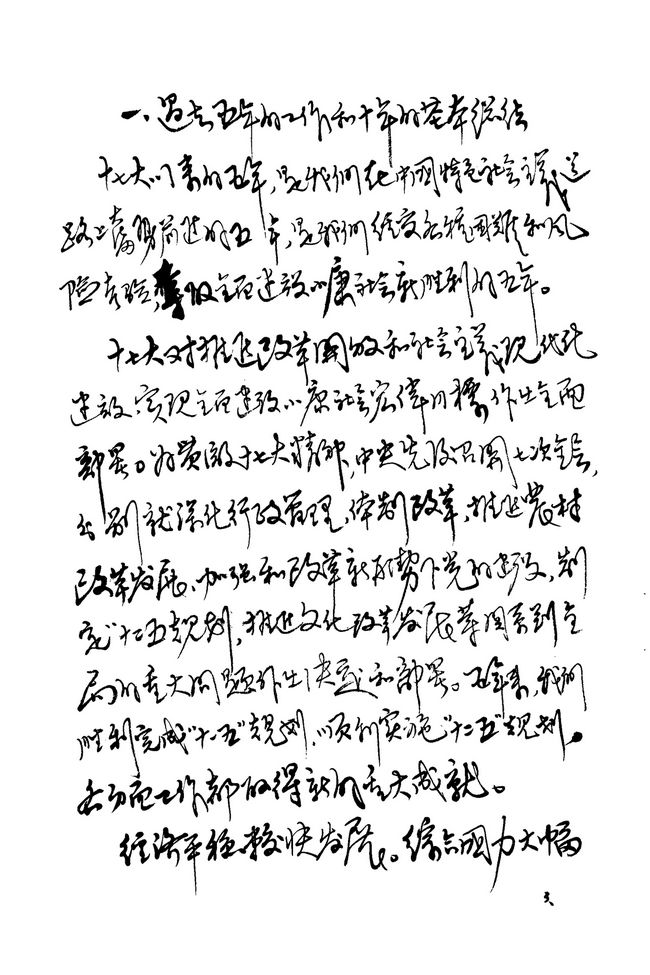 一、过去五年的工作和十年的基本总结
十七大以来的五年，是我们在中国特色社会主义道
路上奋勇前进的五年，是我们经受各种困难和风
险考验，夺取全面建设小康社会新胜利的五年。
十七大对推进改革开放和社会主义现代化
建设、实现全面建设小康社会宏伟目标作出全面
部署。为贯彻十七大精神，中央先后召开七次全会，
分别就深化行政管理体制改革，推进农村
改革发展、加强和改革新形势下党的建设，制
定“十二五”规划，推进文化改革发展等关系到全
局的重大问题作出决定和部署。五年来，我们
胜利完成“十一五”规划，顺利实施“十二五”规划。
各方面工作都取得新的重大成就。
经济平稳较快发展。综合国力大幅